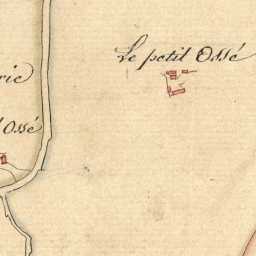 Le petit Ossé
rie
Ossé